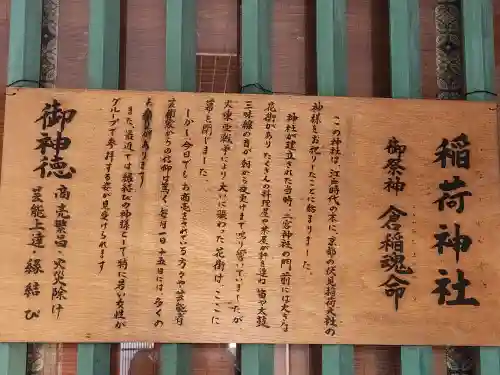 稲荷神社
御祭神 倉稲魂命
この神社は、江戸時代の末に、京都の伏見稲荷大社の
神様をお祀りしたことに始まりました。
神社が建立された当時、二宮神社の門前には大きな
花街があり たくさんの料理屋や茶屋が軒を連ね 笛や太鼓
三味線の音が 朝から夜更けまで鳴り響いていましたが
大東亜戦争により大いに賑わった花街は、ここに
幕を閉じました。
しかし、今日でもお商売をされている方々や芸能、
芸能家からの信仰は篤く 毎月一日十五日には 多くの
お参りがあります。
また、最近では縁結びの神様として 特に若い女性が
グループで参拝する姿が見受けられます
御神徳
商売繁昌・火災除け
芸能上達・縁結び